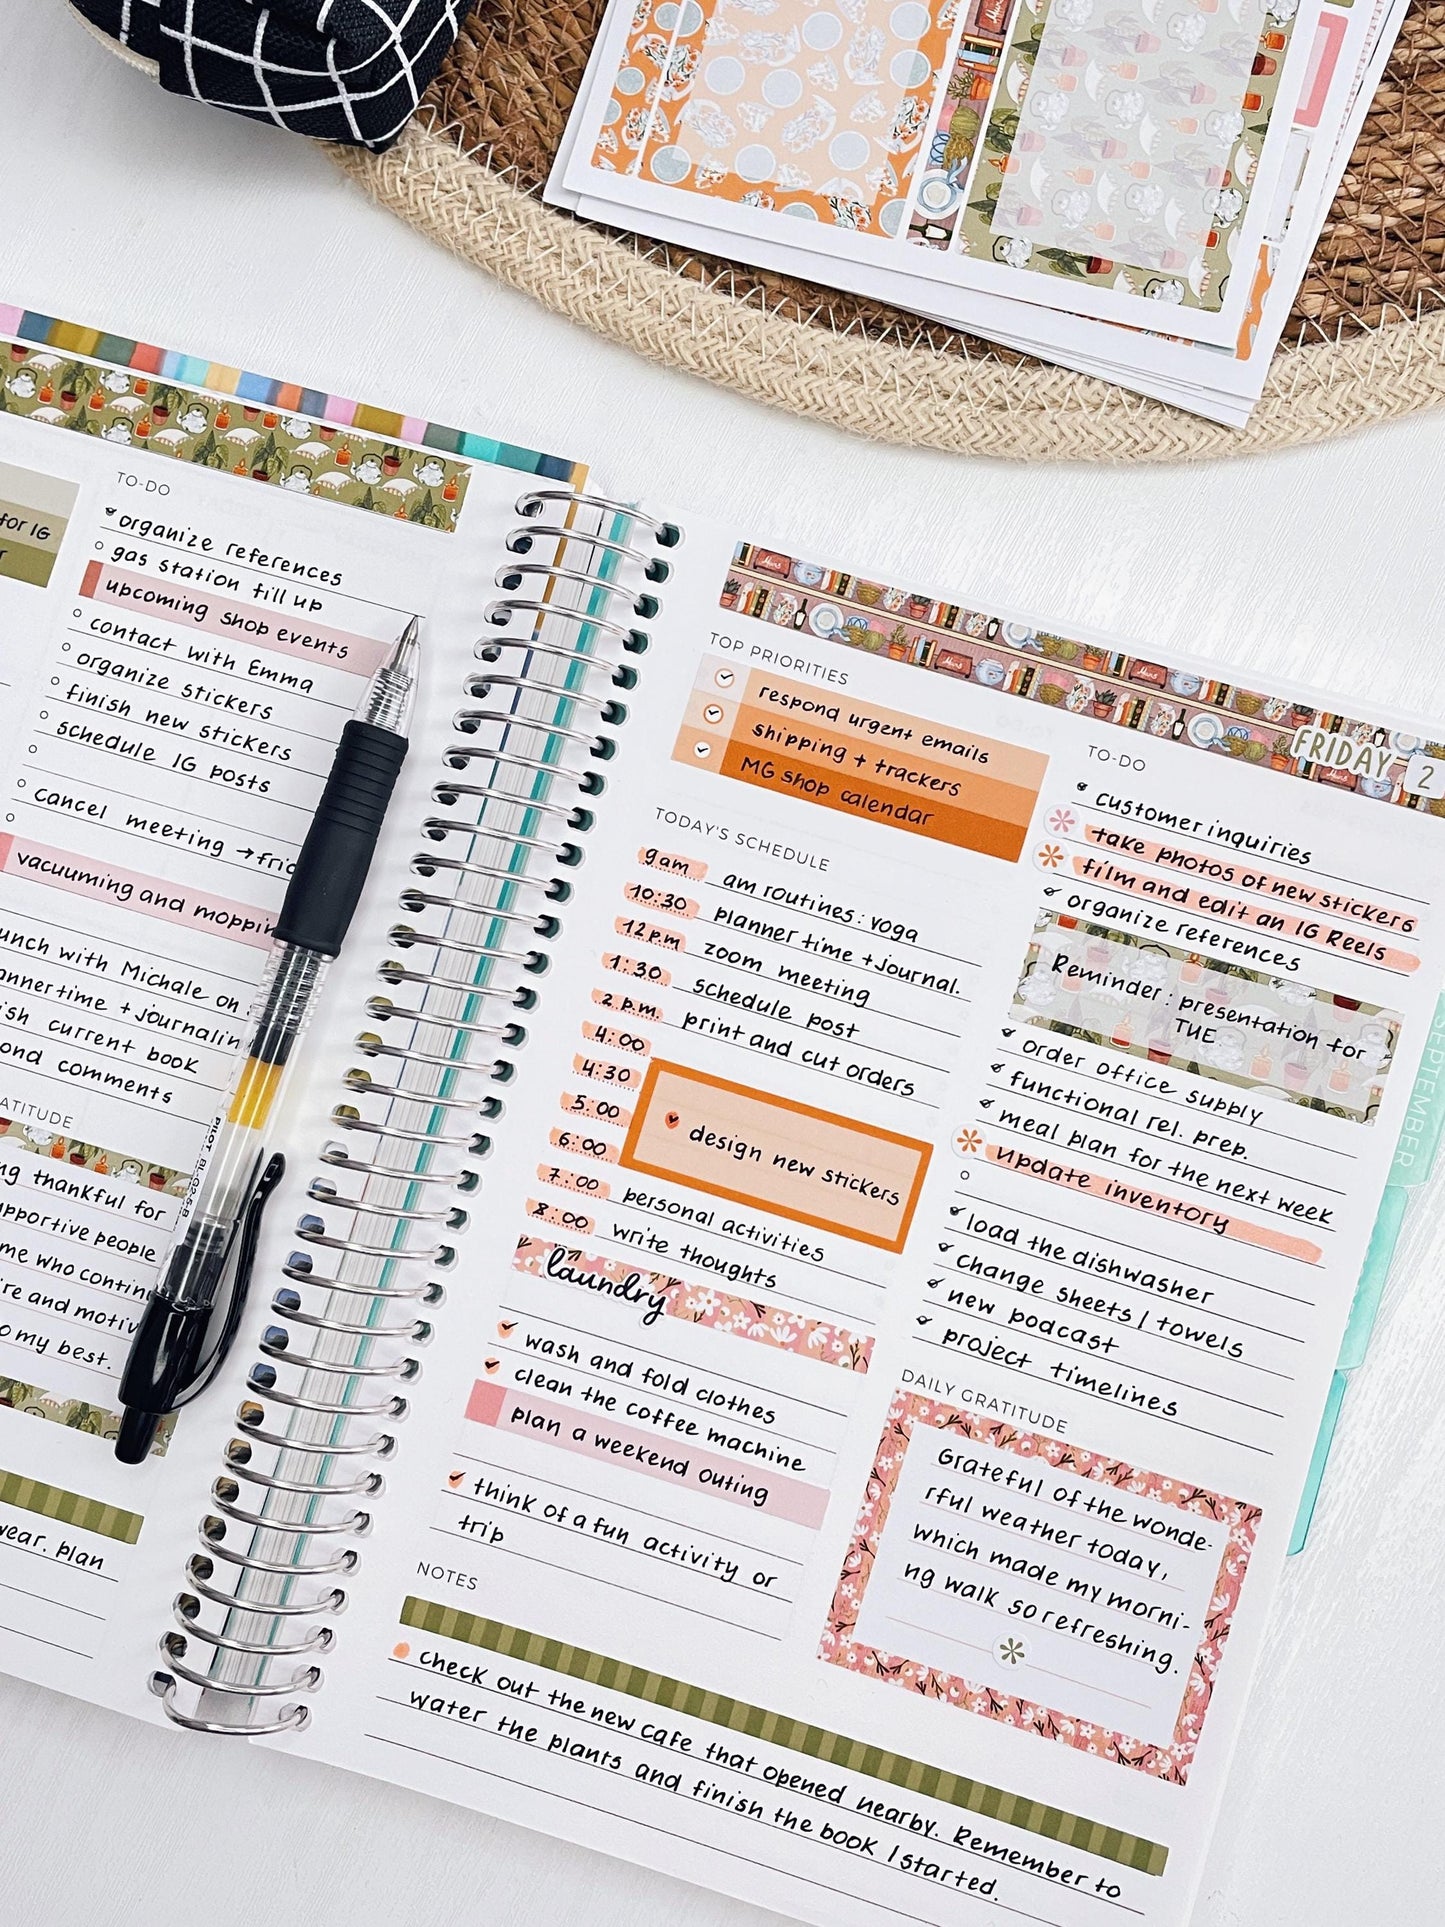 for IG
TO-DO
organize references
gas station fill up
upcoming shop events
contact with Emma
organize stickers
finish new stickers
schedule IG posts
cancel meeting →
vacuuming and
with Michale on
+ journalin
current book
comments
thankful for
people
me who
and
to my best.
wear. plan
PILOT BL-G2-5-B
FRIDAY 2
TOP PRIORITIES
respond urgent emails
shipping + trackers
MG shop calendar
TODAY'S SCHEDULE
9am am routines: yoga
10:30 planner time + journal.
12p.m zoom meeting
1:30 schedule post
2 p.m. print and cut orders
4:00
4:30
5:00 design new stickers
6:00
7:00 personal activities
8:00 write thoughts
laundry
wash and fold clothes
clean the coffee machine
plan a weekend outing
think of a fun activity or
trip
TO-DO
customer inquiries
take photos of new stickers
film and edit an IG Reels
organize references
Reminder: presentation for
TUE
order office supply
functional rel. prep.
meal plan for the next week
update inventory
load the dishwasher
change sheets / towels
new podcast
project timelines
DAILY GRATITUDE
Grateful of the wonde-
rful weather today,
which made my morni-
ng walk so refreshing.
NOTES
check out the new cafe that opened nearby. Remember to
water the plants and finish the book I started.
SEPTEMBER